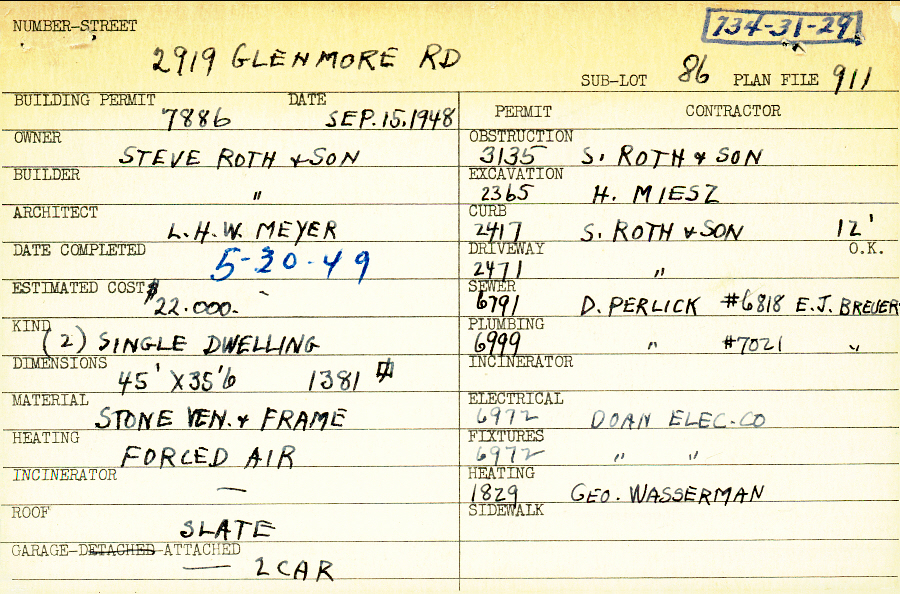 NUMBER-STREET
734-31-29
2919 GLENMORE RD
SUB-LOT 86 PLAN FILE 911
BUILDING PERMIT DATE
7886 SEP. 15, 1948
OWNER
STEVE ROTH & SON
BUILDER
"
ARCHITECT
L. H. W. MEYER
DATE COMPLETED
5-20-49
ESTIMATED COST $
22.000.
KIND
(2) SINGLE DWELLING
DIMENSIONS
45' X 35'6 1381
MATERIAL
STONE VEN. & FRAME
HEATING
FORCED AIR
INCINERATOR
—
ROOF
SLATE
GARAGE-DETACHED-ATTACHED
— 2 CAR
PERMIT CONTRACTOR
OBSTRUCTION
3135 S. ROTH & SON
EXCAVATION
2365 H. MIESZ
CURB
2417 S. ROTH & SON 12'
DRIVEWAY O.K.
2471 "
SEWER
6791 D. PERLICK #6818 E.J. BREUER
PLUMBING
6999 " #7021 "
INCINERATOR
ELECTRICAL
6972 DOAN ELEC. CO
FIXTURES
6972 " "
HEATING
1829 GEO. WASSERMAN
SIDEWALK